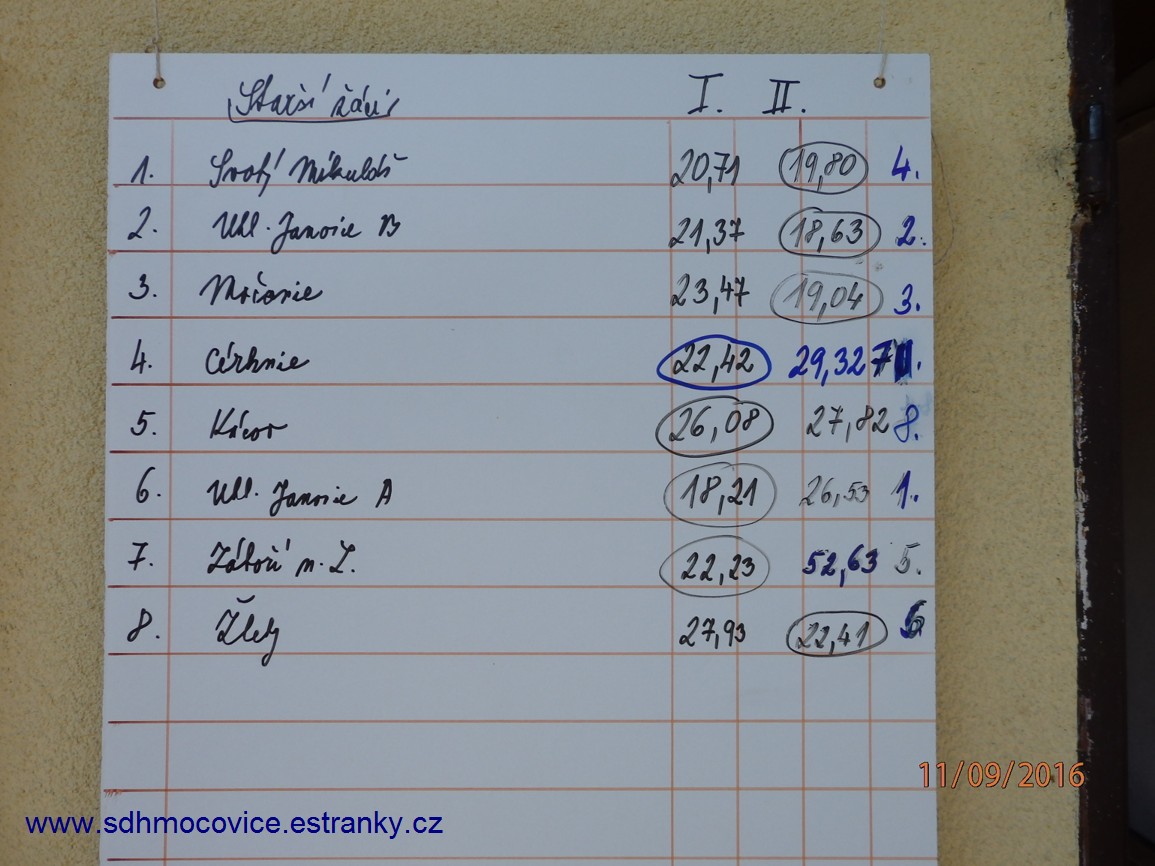 Starší žáci I. II.
1. Svatý Mikuláš 20,71 19,80 4.
2. Uhl. Janovice B 21,37 18,63 2.
3. Močovice 23,47 19,04 3.
4. Církvice 22,42 29,32 7.
5. Kácov 26,08 27,82 8.
6. Uhl. Janovice A 18,21 26,53 1.
7. Záboří n. L. 22,23 52,63 5.
8. Žleby 27,93 22,41 6
11/09/2016
www.sdhmocovice.estranky.cz